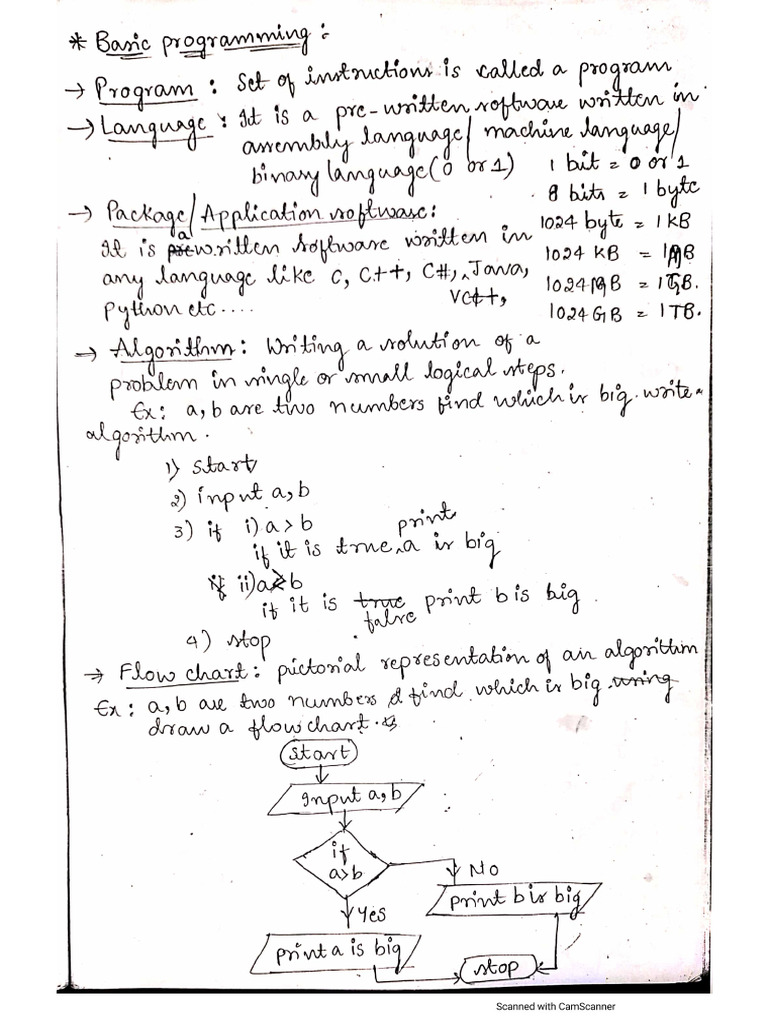 * Basic programming :
→ Program : Set of instructions is called a program
→ Language : It is a pre-written software written in
assembly language/ machine language/
binary language (0 or 1)
1 bit = 0 or 1
8 bits = 1 byte
1024 byte = 1 KB
1024 KB = 1 MB
1024 MB = 1 GB.
1024 GB = 1 TB.
→ Package/ Application software :
It is a written software written in
any language like C, C++, C#, Java,
VC++,
Python etc ....
→ Algorithm : Writing a solution of a
problem in single or small logical steps.
Ex : a, b are two numbers find which is big. write
algorithm.
1) start
2) input a, b
3) if i) a > b
if it is true, print a is big
ii) a < b
if it is true false print b is big
4) stop
→ Flow chart : pictorial representation of an algorithm
Ex : a, b are two numbers & find which is big. using
draw a flow chart.
start
Input a, b
if
a>b
No
print b is big
Yes
print a is big
stop
Scanned with CamScanner